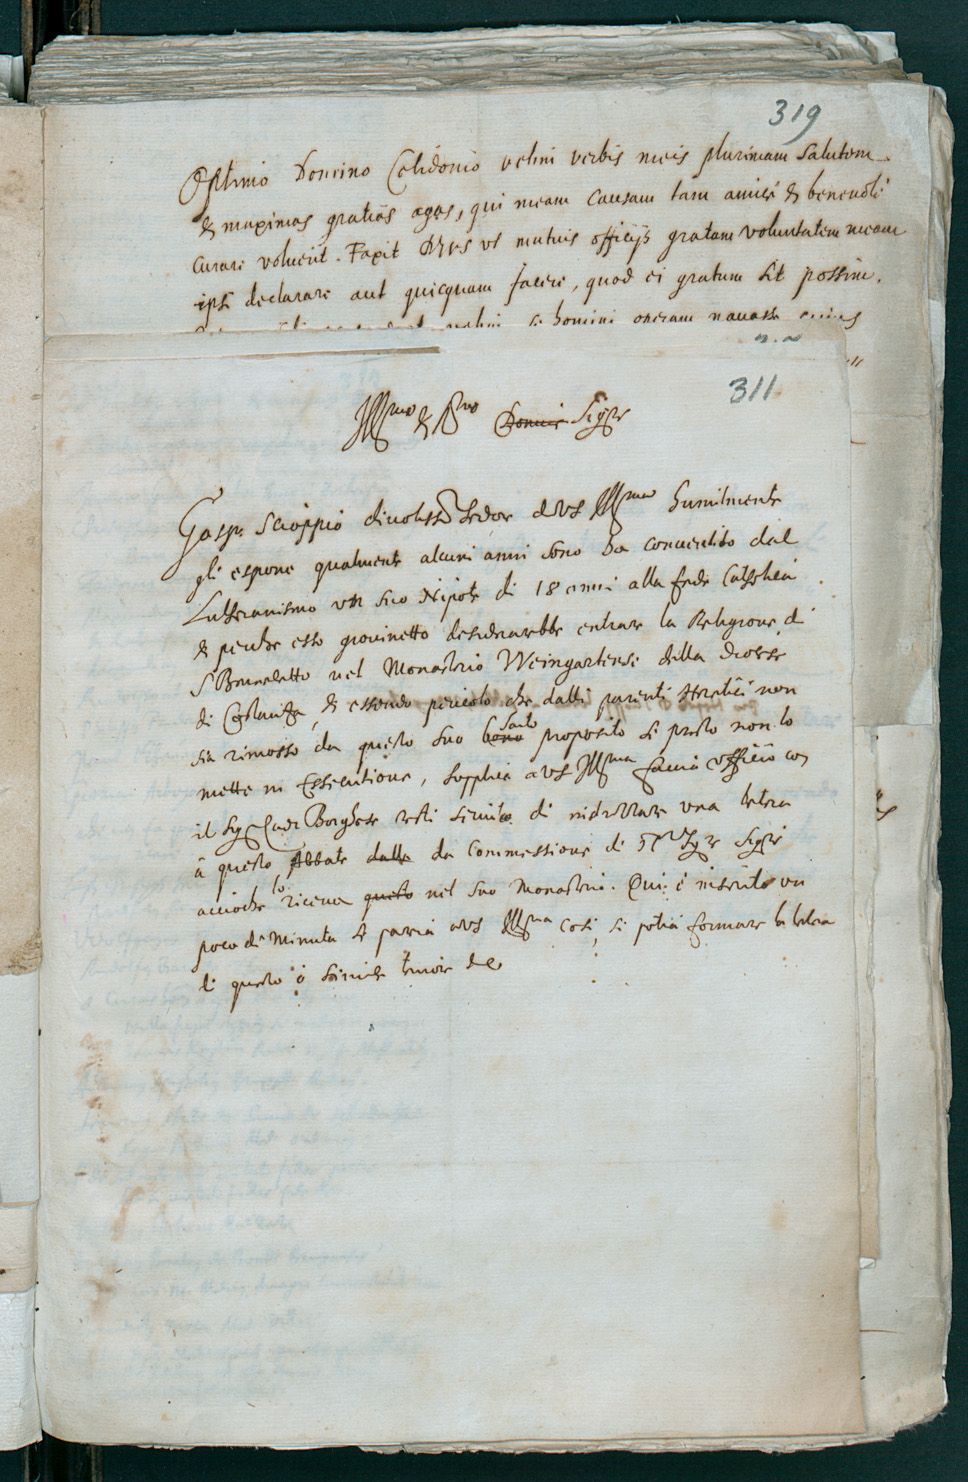 319
Optimo Domino Celidonio velim verbis meis plurimam salutem
& maximas gratias agas, qui meam causam tam amicè & beneuolè
curare voluerit. Faxit Deus vt mutuis officijs gratam voluntatem meam
ipsi declarare aut quicquam facere, quod ei gratum sit possim.
velim homini operam nauasse
311
Illmo & Rmo Domine Sigre
Gasp. Scioppio diuotisso seruore di VS Illma humilmente
gli espone qualmente alcuni anni sono ha conuertito dal
Lutheranismo vn suo Nipote di 18 anni alla fede Catholica
& perche esso giouinetto desiderarebbe entrare la Religione di
S Benedetto nel Monasterio Weingartense della diocese
di Costanza, & essendo pericolo che dalli parenti heretici non
sia rimosso da questo suo bono santo proposito se presto non lo
mette in Essecutione, supplica a VS Illma faccia officio con
il Sig Card Borghese resti seruito di indrizzare vna lettera
à questo Abbate dalla da Commessione di N Sigre
accioche lo riceua questo nel suo Monasterio. Qui è inserito vn
poco di Minuta se paria a VS Illma cosi, si potria formare la lettera
di questo ò simile tenore